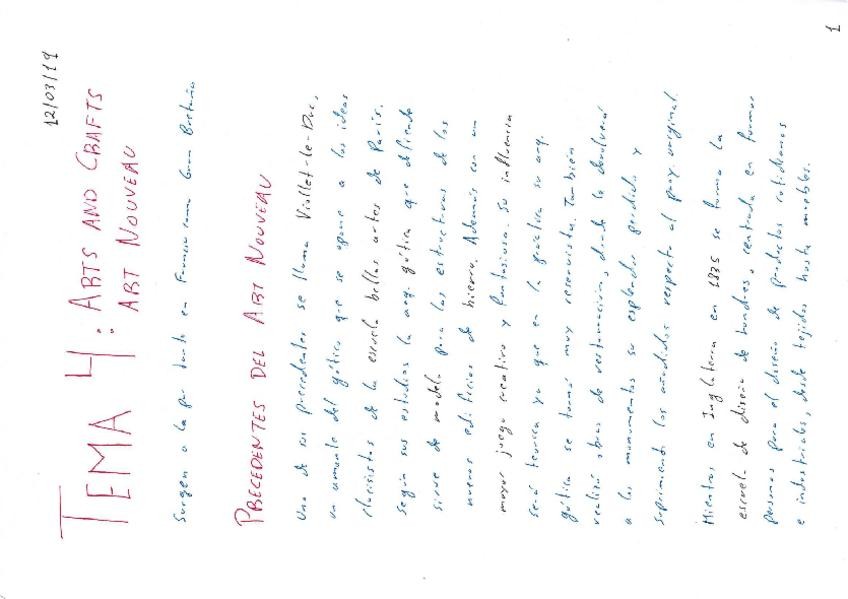 12/03/19
TEMA 4: ARTS AND CRAFTS
ART NOUVEAU
Surgen a la par tanto en Francia como Gran Bretaña
PRECEDENTES DEL ART NOUVEAU
Uno de sus precedentes se llama Viollet-le-Duc,
un amante del gótico que se opone a las ideas
clasicistas de la escuela bellas artes de París.
Según sus estudios la arq. gótica que defiende
sirve de modelo para las estructuras de los
nuevos edificios de hierro. Además con un
mayor juego creativo y fantasioso. Su influencia
será teorica ya que en la práctica su arq.
gótica se tornó muy reservista. También
realizó obras de restauracion, donde la devolverá
a los monumentos su esplendor perdido y
suprimiendo los añadidos respecto al proy. original.
Mientras en Inglaterra en 1835 se forma la
escuela de diseño de Londres, centrada en formar
personas para el diseño de productos cotidianos
e industriales, desde tejidos hasta muebles.
1